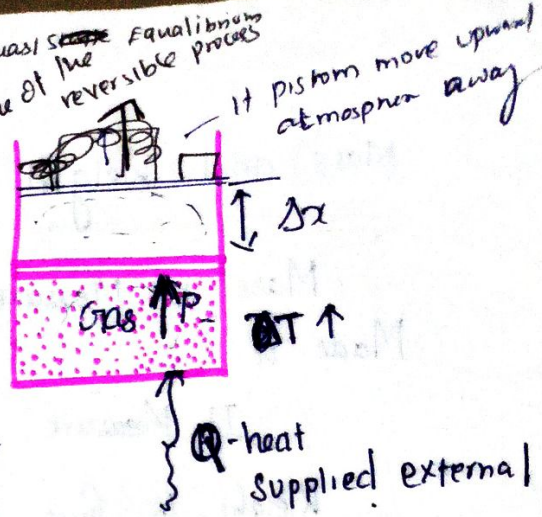 Equalibrium
of the reversible process
It pistom move upward
atmospher away
Δx
Gas P
T ↑
Q-heat
supplied external